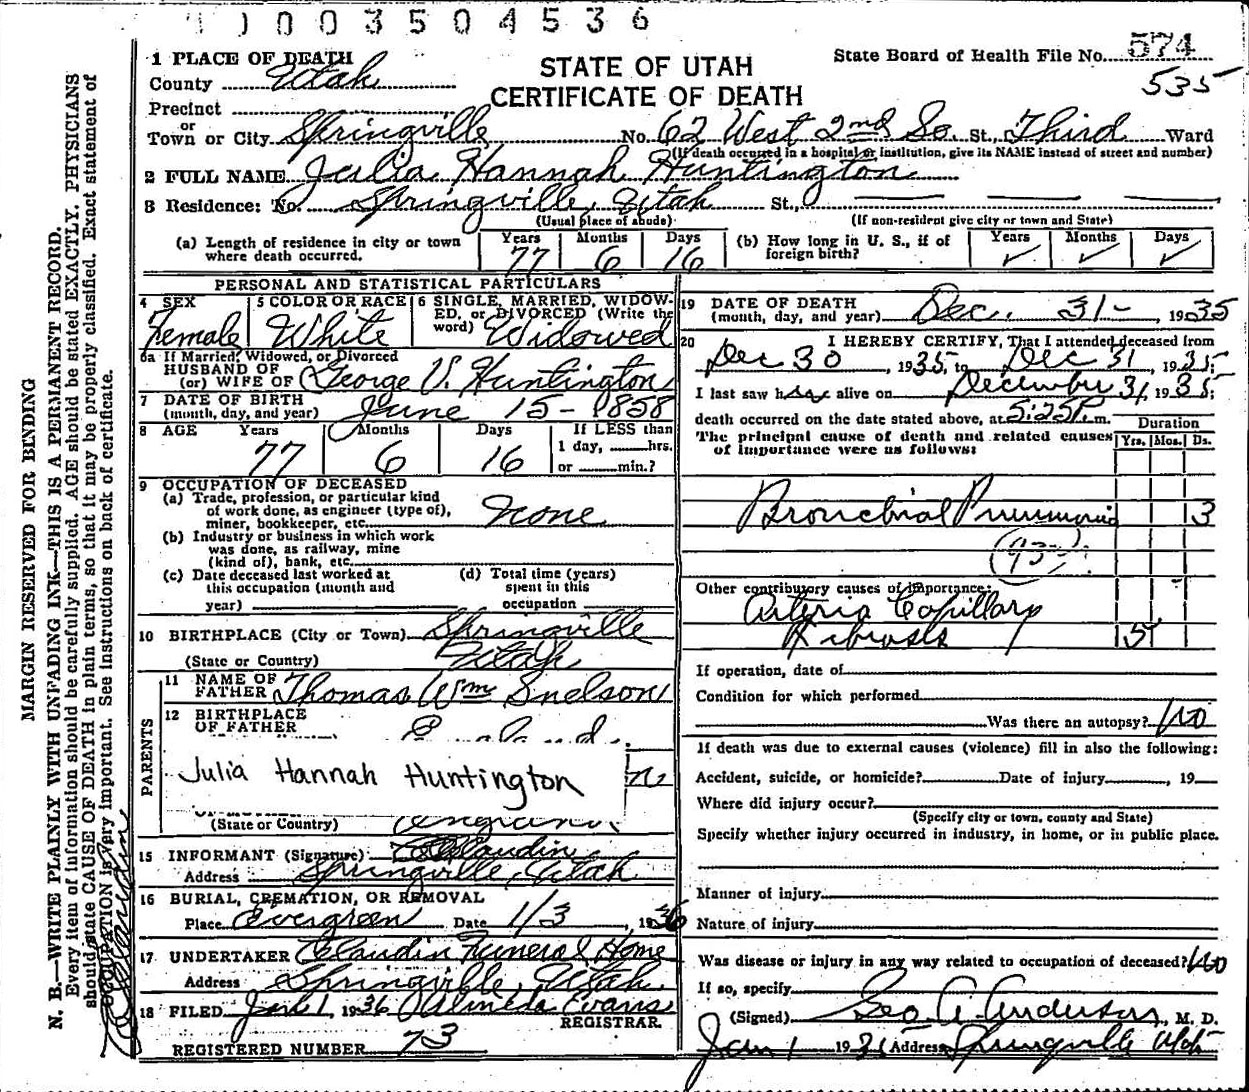 1000350 4536
State Board of Health File No. 574
535
STATE OF UTAH
CERTIFICATE OF DEATH
1 PLACE OF DEATH
County Utah
Precinct
or
Town or City Springville No. 62 West 2nd So. St., Third Ward
(If death occurred in a hospital or institution, give its NAME instead of street and number)
2 FULL NAME Julia Hannah Huntington
3 Residence: No. Springville, Utah St.,
(Usual place of abode) (If non-resident give city or town and State)
(a) Length of residence in city or town where death occurred. Years 77 Months 6 Days 16
(b) How long in U. S., if of foreign birth? Years ✓ Months ✓ Days ✓
PERSONAL AND STATISTICAL PARTICULARS
4 SEX Female
5 COLOR OR RACE White
6 SINGLE, MARRIED, WIDOWED, or DIVORCED (Write the word) Widowed
6a If Married, Widowed, or Divorced
HUSBAND OF
(or) WIFE OF George V. Huntington
7 DATE OF BIRTH
(month, day, and year) June 15- 1858
8 AGE Years 77 Months 6 Days 16
If LESS than
1 day, hrs.
or min.?
9 OCCUPATION OF DECEASED
(a) Trade, profession, or particular kind
of work done, as engineer (type of),
miner, bookkeeper, etc. None
(b) Industry or business in which work
was done, as railway, mine
(kind of), bank, etc.
(c) Date deceased last worked at
this occupation (month and
year)
(d) Total time (years)
spent in this
occupation
10 BIRTHPLACE (City or Town) Springville
(State or Country) Utah
PARENTS
11 NAME OF
FATHER Thomas Wm Snelson
12 BIRTHPLACE
OF FATHER England
Julia Hannah Huntington
(State or Country) England
15 INFORMANT (Signature) Claudin
Address Springville, Utah
16 BURIAL, CREMATION, OR REMOVAL
Place Evergreen Date 1/3, 1936
17 UNDERTAKER Claudin Funeral Home
Address Springville, Utah
18 FILED Jan 1, 1936 Almeda Evans
REGISTRAR
REGISTERED NUMBER 73
19 DATE OF DEATH
(month, day, and year) Dec. 31-, 1935
20 I HEREBY CERTIFY, That I attended deceased from
Dec 30, 1935, to Dec 31, 1935;
I last saw her alive on December 31, 1935;
death occurred on the date stated above, at 5:25P.m.
The principal cause of death and related causes
of importance were as follows:
Duration
Yrs. Mos. Ds.
Bronchial Pneumonia 3
Other contributory causes of importance:
Arterio Capillary
Fibrosis 5
If operation, date of
Condition for which performed
Was there an autopsy? No
If death was due to external causes (violence) fill in also the following:
Accident, suicide, or homicide? Date of injury, 19
Where did injury occur?
(Specify city or town, county and State)
Specify whether injury occurred in industry, in home, or in public place.
Manner of injury
Nature of injury
Was disease or injury in any way related to occupation of deceased? No
If so, specify
(Signed) Geo. A. Anderson, M. D.
Jan 1 193 Address Springville Utah
MARGIN RESERVED FOR BENDING
N. B.—WRITE PLAINLY WITH UNFADING INK—THIS IS A PERMANENT RECORD.
Every item of information should be carefully supplied. AGE should be stated EXACTLY. PHYSICIANS
should state CAUSE OF DEATH in plain terms, so that it may be properly classified. Exact statement of
OCCUPATION is very important. See instructions on back of certificate.
Claudin